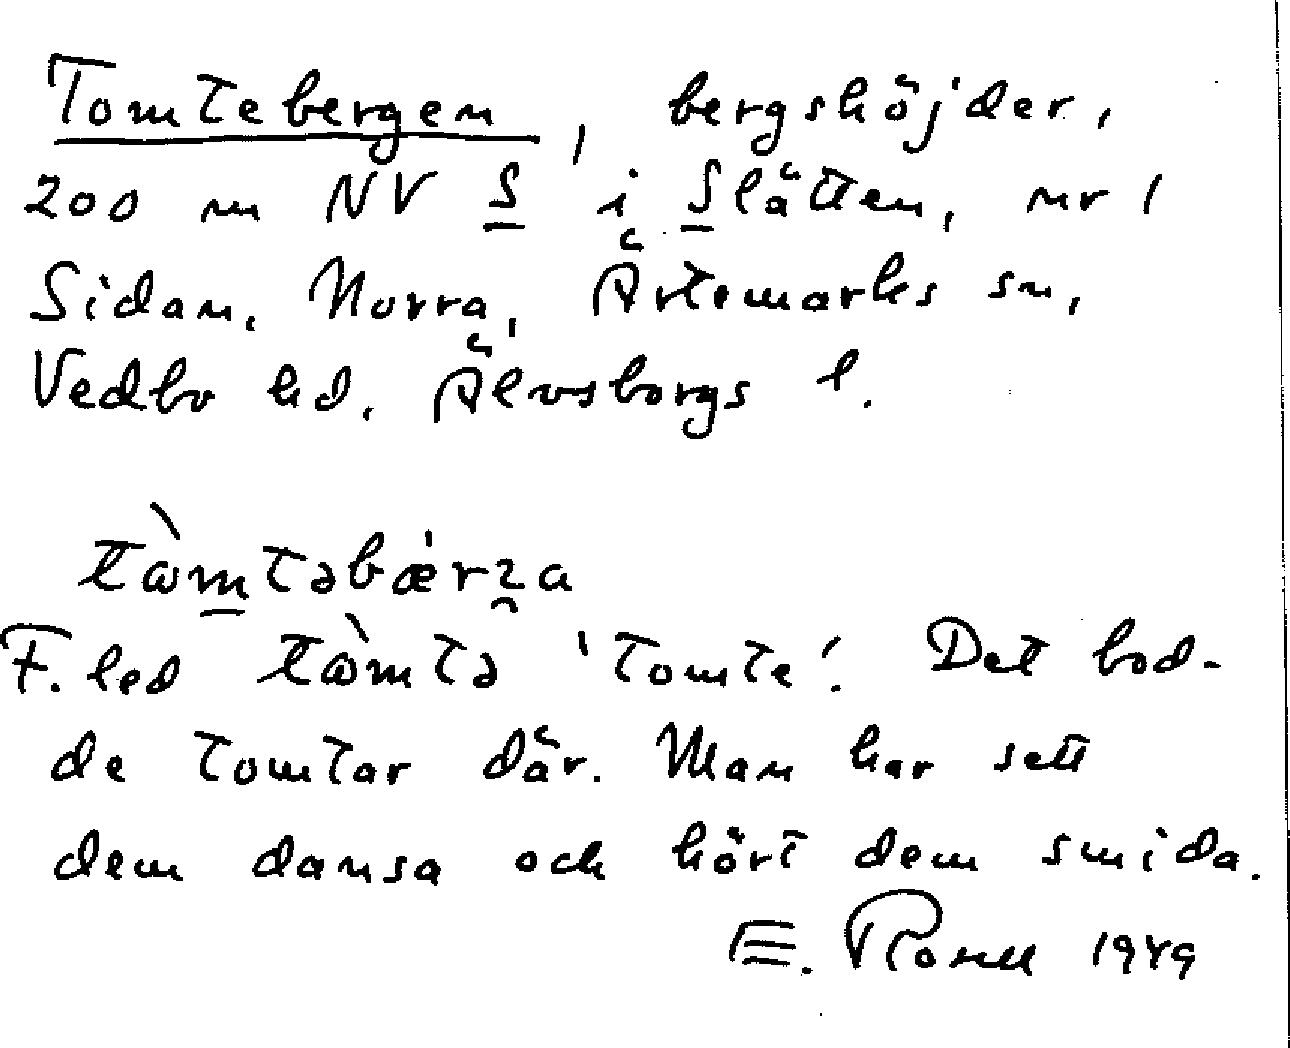 Tomtebergen, bergshöjder,
200 m NV S i Slätten, nr 1
Sidan, Norra, Ärtemarks sn,
Vedbo hd, Älvsborgs l.
tòmtəbærʒa
F. led tòmtə 'tomte'. Det bod-
de tomtar där. Man har sett
dem dansa och hört dem smida.
E. 1949